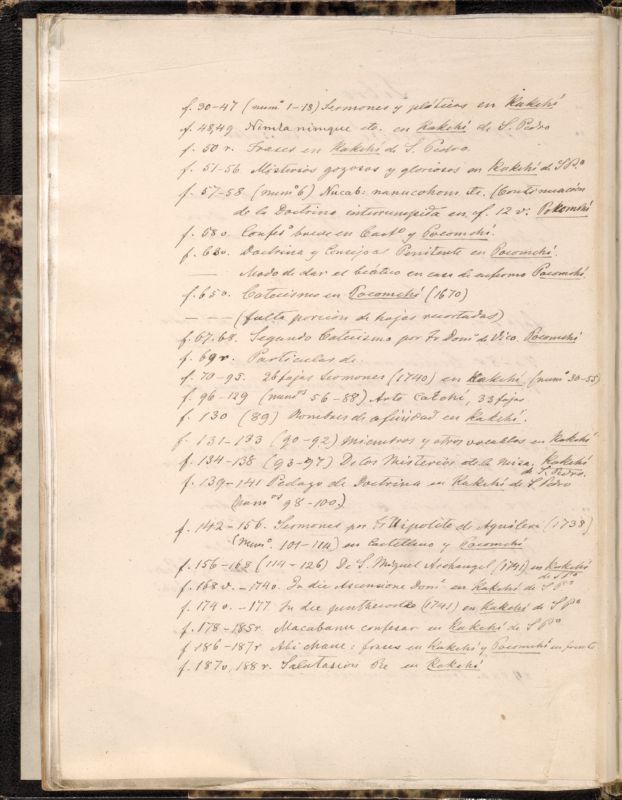 f. 30-47 (num.º 1-18) Sermones y pláticas en Kakchí
f. 48,49. Nimla nimque etc. en Kakchí de S. Pedro
f. 50 r. Frases en Kakchí de S. Pedro.
f. 51-56. Misterios gozosos y gloriosos en Kakchí de S Pº
f. 57-58 (num.º 6) Nucab: nanucohom etc. (Continuación
de la Doctrina interrumpida en f. 12 v: Pokomchí
f. 58 v. Confes.º breve en Castº y Pocomchí.
f. 63 v. Doctrina y Consejo al Penitente en Pocomchí.
—— Modo de dar el béatico en caso de enfermo Pocomchí.
f. 65 v. Catecismo en Pocomchí (1670)
— — — (falta porción de hojas recortadas)
f. 67.68. Segundo Catecismo por Fr Domº de Vico. Pocomchí
f. 69 r. Particulas de.
f. 70-95. 26 fojas Sermones (1740) en Kakchí (numº 30-55)
f. 96-129 (numºs 56-88) Arte Cacchí, 33 fojas.
f. 130 (89) Nombres de afinidad en Kakchí.
f. 131-133 (90-92) Miembros y otros vocablos en Kakchí
f. 134-138 (93-97) De los Misterios de la misa. Kakchí
de S. Pedro.
f. 139-141 Pedazo de Doctrina en Kakchí de S Pedro
(numºs 98-100)
f. 142-156. Sermones por Fr Hipolito de Aguilera (1738)
(numº. 101-114) en Castellano y Pocomchí
f. 156-168 (114-126) De S. Miguel Archangel (1741) en Kakchí
de S Pº
f. 168 v. - 174 v. In die Ascensione Domⁱ en Kakchí de S Pº
f. 174 v. - 177 In die (1741) en Kakchí de S Pº
f. 178-185 r. Macabanu confesar en Kakchí de S Pº
f 186-187 r Abi chaue: frases en Kakchí y Pocomchí en frente
f. 187 v, 188 r. Salutasion Re en Kakchí